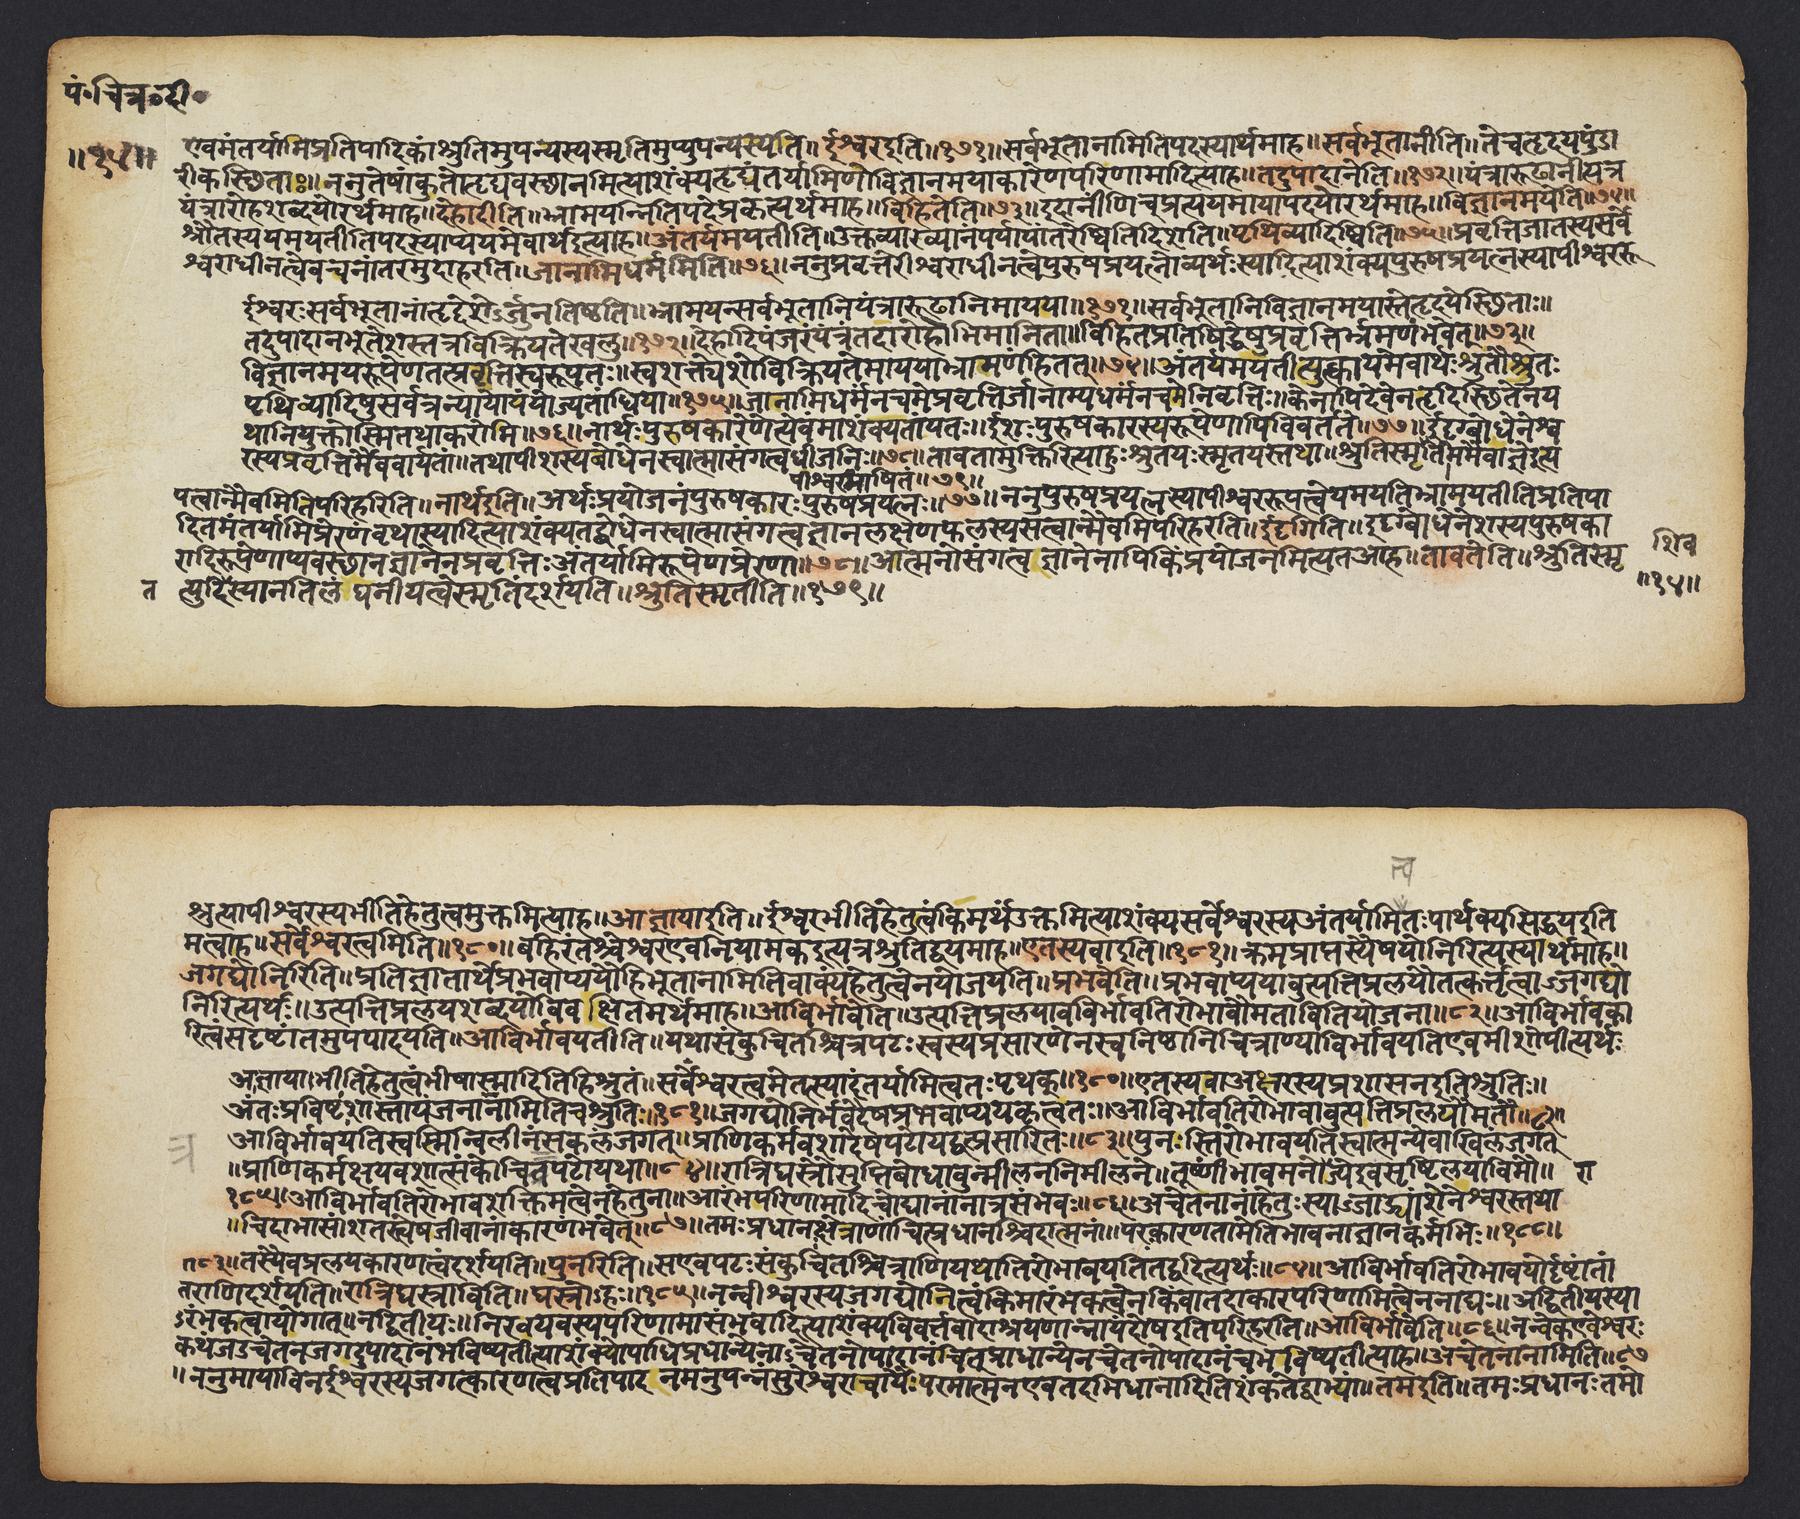 पं॰चित्र॰दी॰
॥१५॥
एवमंतर्यामिप्रतिपादिकांश्रुतिमुपन्यस्यस्मृतिमुप्युपन्यस्येति॥ईश्वरइति॥१७१॥सर्वभूतानामितिपदस्यार्थमाह॥सर्वभूतानीति॥तेचहृदयपुंडा
रीकस्छिताः॥ननुतेषांकुतोहृद्यवस्छानमित्याशंक्यहृद्यंतर्यामिणोविज्ञानमयाकारेणपरिणामादित्याह॥तदुपादानेति॥१७२॥यंत्रारूढानीत्यत्र
यंत्रारोहशब्दयोरर्थमाह॥देहादीति॥भ्रामयन्नितिपदेप्रकृत्यर्थमाह॥विहितेति॥७३॥इदानींणिच्प्रत्ययमायापदयोरर्थमाह॥विज्ञानमयेति॥७४॥
श्रौतस्ययमयतीतिपदस्याप्ययमेवार्थइत्याह॥अंतर्यमयतीति॥उक्तव्याख्यानंपर्यायांतरेष्वितिदिशति॥पृथिव्यादिष्विति॥७५॥प्रवृत्तिजातस्यसर्वे
श्वराधीनत्वेवचनांतरमुदाहरति॥जानामिधर्ममिति॥७६॥ननुप्रवृत्तेरीश्वराधीनत्वेपुरुषप्रयत्नोव्यर्थःस्यादित्याशंक्यपुरुषप्रयत्नस्यापीश्वररू
ईश्वरःसर्वभूतानांहृद्देशेऽर्जुनतिष्ठति॥भ्रामयन्सर्वभूतानियंत्रारूढानिमायया॥१७१॥सर्वभूतानिविज्ञानमयास्तेहृदयेस्छिताः॥
तदुपादानभूतेशस्तत्रविक्रियतेखलु॥१७२॥देहादिपंजरंयंत्रंतदारोहोभिमानिता॥विहितप्रतिषिद्धेषुप्रवृत्तिर्भ्रमणंभवेत्॥७३॥
विज्ञानमयरूपेणतत्प्रवृत्तिस्वरूपतः॥स्वशक्त्येशोविक्रियतेमाययाभ्रामणंहितत्॥७४॥अंतर्यमयतीत्युक्त्यायमेवार्थःश्रुतौश्रुतः
पृथिव्यादिषुसर्वत्रन्यायोयंयोज्यतांधिया॥१७५॥जानामिधर्मंनचमेप्रवृत्तिर्जानाम्यधर्मंनचमेनिवृत्तिः॥केनापिदेवेनहृदिस्छितेनय
थानियुक्तोस्मितथाकरोमि॥७६॥नार्थःपुरुषकारेणेत्येवंमाशंक्यतांयतः॥ईशःपुरुषकारस्यरूपेणापिविवर्तते॥७७॥ईदृग्बोधेनेश्व
रस्यप्रवृत्तिर्मैववार्यतां॥तथापीशस्यबोधेनस्वात्मासंगत्वधीजनिः॥७८॥तावतामुक्तिरित्याहुःश्रुतयःस्मृतयस्तथा॥श्रुतिस्मृतीममैवाज्ञेइत्य
पीश्वरभाषितं॥७९॥
पत्वान्मैवमितिपरिहरिति॥नार्थइति॥अर्थःप्रयोजनंपुरुषकारःपुरुषप्रयत्नः॥७७॥ननुपुरुषप्रयत्नस्यापीश्वररूपत्वेयमयतिभ्रामयतीतिप्रतिपा
दितमंतर्यामिप्रेरणंवृथास्यादित्याशंक्यतद्बोधेनस्वात्मासंगत्वज्ञानलक्षणफलस्यसत्वान्मैवमिपरिहरति॥ईदृगिति॥इदृग्बोधेनेशस्यपुरुषका
रादिरूपेणाप्यवस्छानज्ञानेनप्रवृत्तिःअंतर्यामिरूपेणप्रेरणा॥७८॥आत्मनोसंगत्वज्ञानेनापिकिंप्रयोजनमित्यतआह॥तावतेति॥श्रुतिस्मृ
त्युदिस्यानतिलंघनीयत्वेस्मृतिंदर्शयति॥श्रुतिस्मृतीति॥१७९॥
त
शिव
॥१५॥
त्व
श्रुत्यापीश्वरस्यभीतिहेतुत्वमुक्तमित्याह॥आज्ञायाइति॥ईश्वरभीतिहेतुत्वंकिमर्थंउक्तमित्याशंक्यसर्वेश्वरस्यअंतर्यामितःपार्थक्यसिद्धयइति
मत्वाह॥सर्वेश्वरत्वमिति॥१८०॥बहिरंतश्चेश्वरएवनियामकइत्यत्रश्रुतिद्वयमाह॥एतस्यवाइति॥१८१॥क्रमप्राप्तस्यैषयोनिरित्यस्यार्थमाह॥
जगद्योनिरिति॥प्रतिज्ञातार्थेप्रभवाप्ययौहिभूतानामितिवाक्यंहेतुत्वेनयोजयति॥प्रभवेति॥प्रभवाप्ययावुत्पत्तिप्रलयौतत्कर्तृत्वाज्जगद्यो
निरित्यर्थः॥उत्पत्तिप्रलयशब्दयोर्विवक्षितमर्थमाह॥आविर्भावेति॥उत्पत्तिप्रलयावविर्भावतिरोभावौमतावितियोजना॥८२॥आविर्भावका
रित्वंसदृष्टांतमुपपादयति॥आविर्भावयतीति॥यथासंकुचितश्चित्रपटःस्वस्यप्रसारणेनस्वनिष्ठानिचित्राण्याविर्भावयतिएवमीशोपीत्यर्थः
अज्ञायाभीतिहेतुत्वंभीषास्मादितिहिश्रुतं॥सर्वेश्वरत्वमेतस्यादंतर्यामित्वतःपृथक्॥१८०॥एतस्यवाअक्षरस्यप्रशासनइतिश्रुतिः॥
अंतःप्रविष्टंशास्तायंजनानामितिचश्रुतिः॥१८१॥जगद्योनिर्भवेदेषप्रभवाप्ययकृत्वतः॥आविर्भावतिरोभावावुत्पत्तिप्रलयौमतौ॥८२॥
आविर्भावयतिस्वस्मिन्विलीनंसकलंजगत्॥प्राणिकर्मवशादेषपटोयद्वत्प्रसारितः॥८३॥पुनःस्तिरोभावयतिस्वात्मन्येवाखिलंजगत्
त्र
॥प्राणिकर्मक्षयवशात्संकोचितपटोयथा॥८४॥रात्रिघस्रौसुप्तिबोधावुन्मीलननिमीलने॥तूष्णींभावमनोज्येइवसृष्टिलयाविमौ॥
रा
१८५॥आविर्भावतिरोभावशक्तिमत्वेनहेतुना॥आरंभपरिणामादिचोद्यानांनात्रसंभवः॥८६॥अचेतनानांहेतुःस्याज्जाड्यांशेनेश्वरस्तथा
॥चिदाभासांशतस्त्वेषजीवानांकारणंभवेत्॥८७॥तमःप्रधानःक्षेत्राणांचित्प्रधानश्चिदात्मनां॥परःकारणतामेतिभावनाज्ञानकर्मभिः॥१८८॥
॥८३॥तस्यैवप्रलयकारणत्वंदर्शयति॥पुनरिति॥सएवपटःसंकुचितश्चित्राणियथातिरोभावयतितद्वदित्यर्थः॥८४॥आविर्भावतिरोभावयोर्दृष्टांतां
तराणिदर्शयति॥रात्रिघस्राविति॥घस्रोऽहः॥१८५॥नन्वीश्वरस्यजगद्योनित्वंकिमारंभकत्वेनकिंवातदाकारपरिणामित्वेननाद्यः॥अद्वितीयस्या
ऽरंभकत्वायोगात्॥नद्वितीयः॥निरवयवस्यपरिणामासंभवादित्याशंक्यविवर्त्तवादाश्रयणान्नायंदोषइतिपरिहरति॥आविर्भावेति॥८६॥नन्वेकएवेश्वरः
कथंजडचेतनजगदुपादानंभविष्यतीत्याशंक्योपाधिप्रधान्येनाऽचेतनोपादानंचित्प्राधान्येनचेतनोपादानंचभविष्यतीत्याह॥अचेतनानामिति॥८७
॥ननुमायाविनईश्वरस्यजगत्कारणत्वप्रतिपादनमनुपन्नंसुरेश्वराचार्यैःपरमात्मनएवतदभिधानादितिशंकतेद्वाभ्यां॥तमइति॥तमःप्रधानःतमो